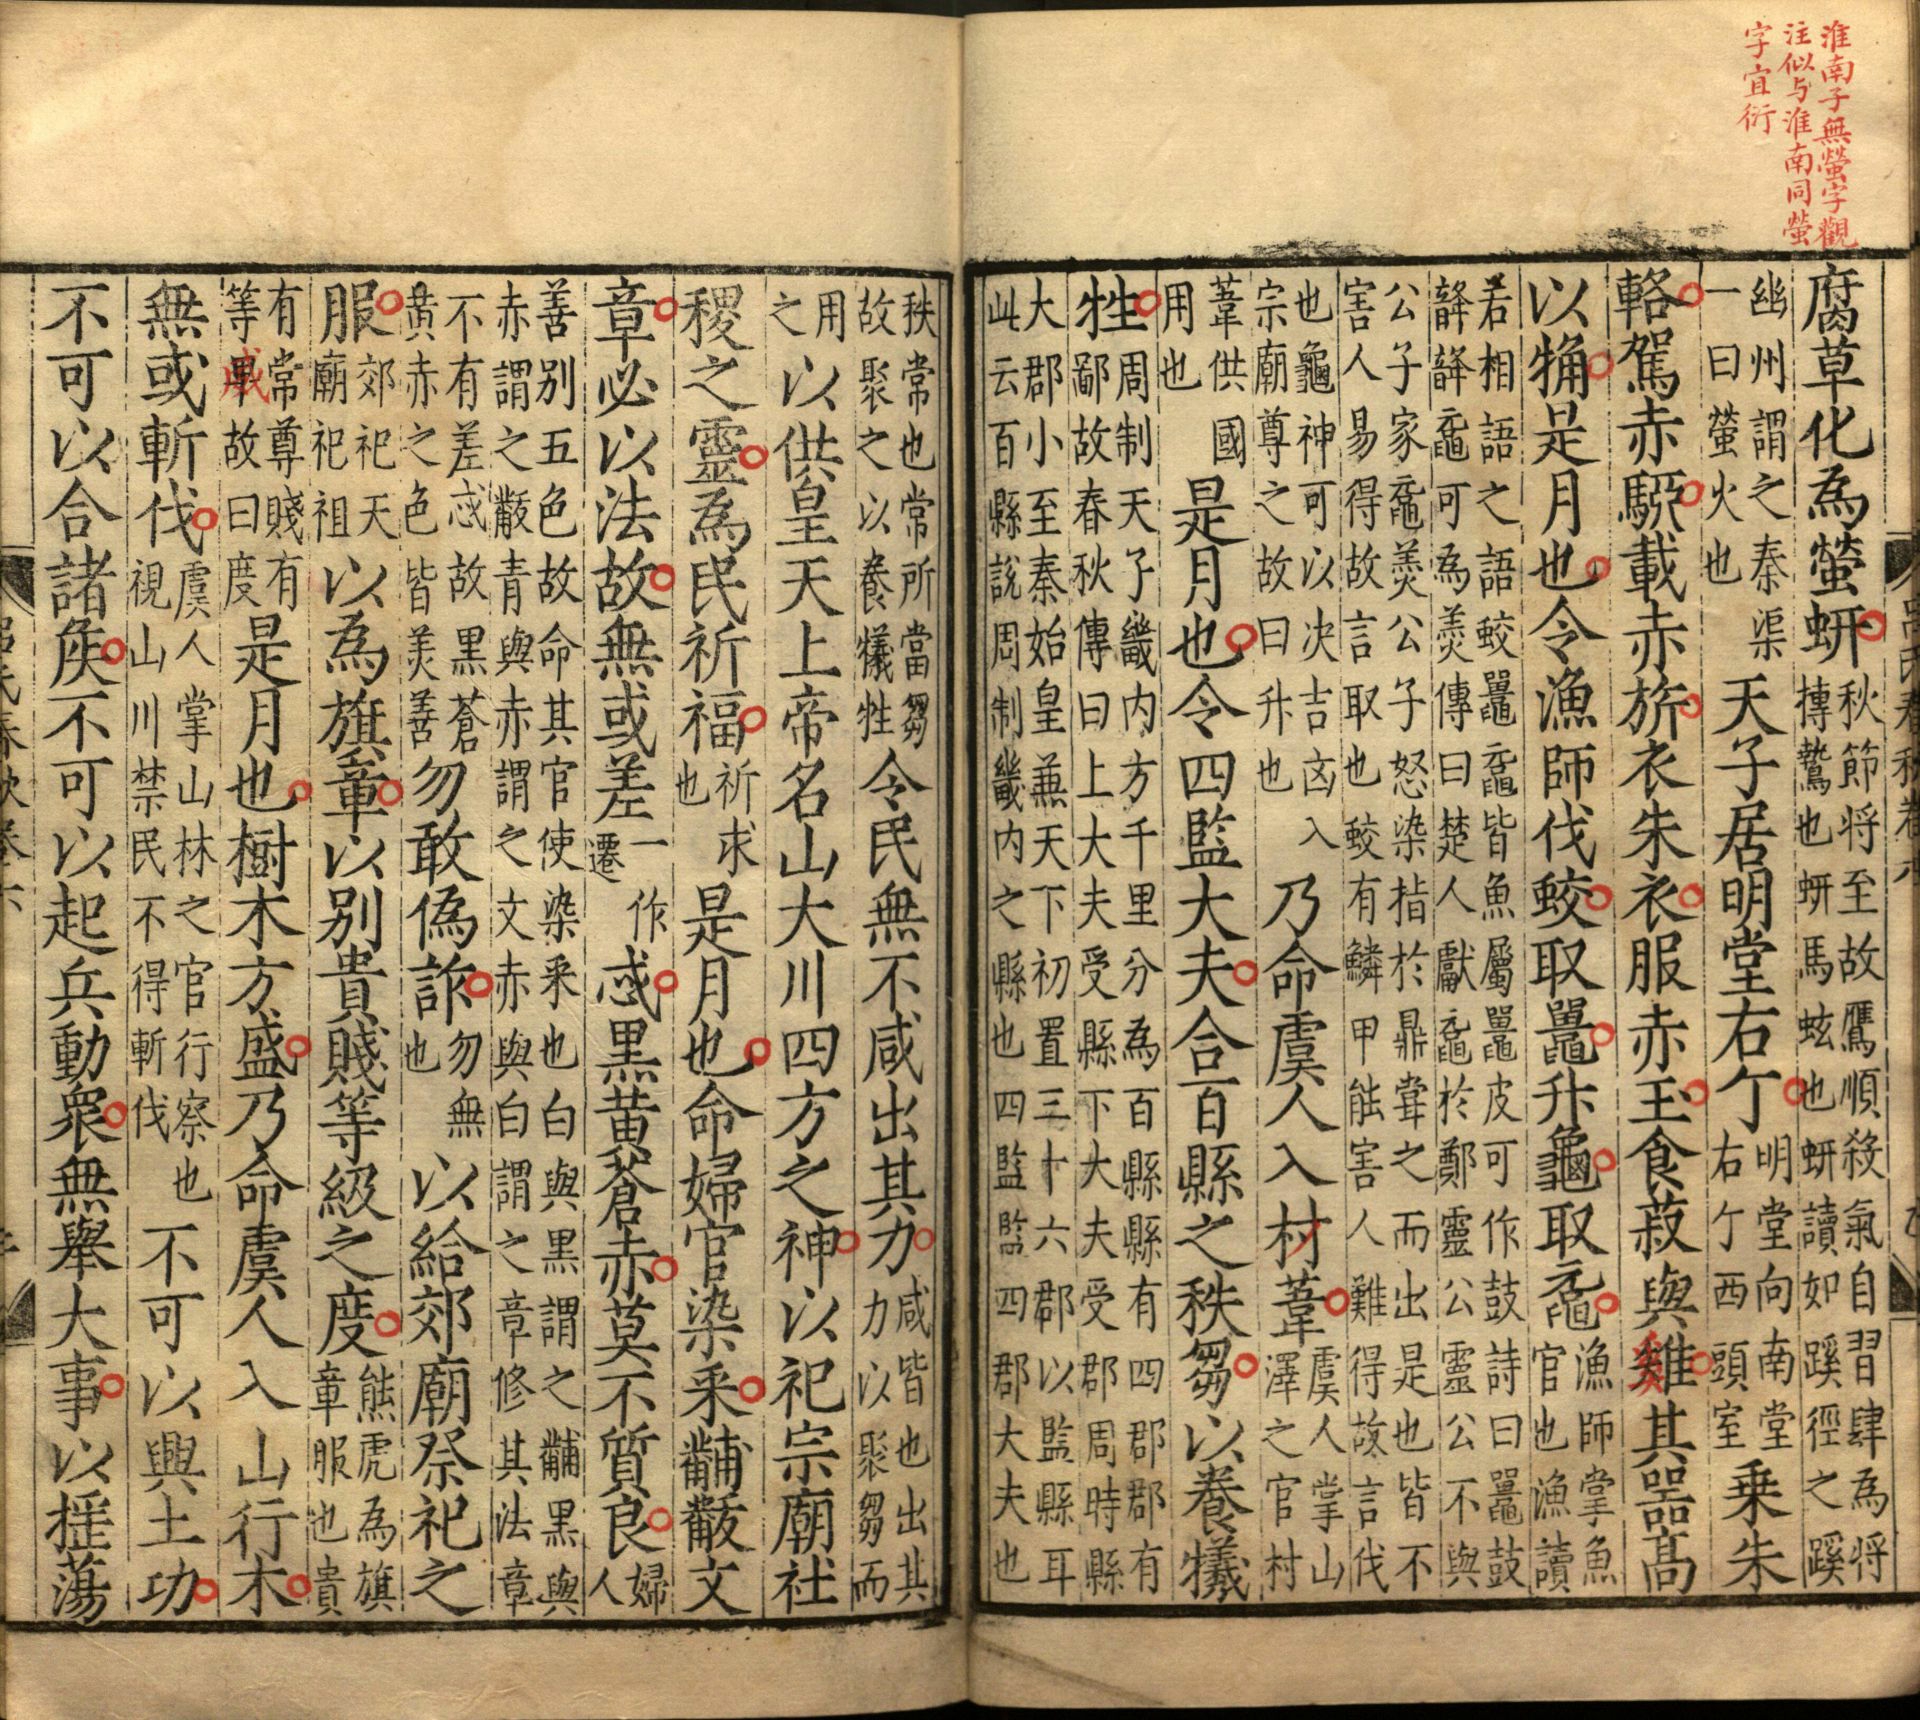 淮南子無螢字觀
注似与淮南同螢
字宜衍
腐草化為螢蚈
秋節將至故鷹順殺氣自習肆為將
搏鷙也蚈馬蚿也蚈讀如蹊徑之蹊
幽州謂之秦渠
一曰螢火也
天子居明堂右个
明堂向南堂
右个西頭室
乗朱
輅駕赤駵載赤旂衣朱衣服赤玉食菽與雞其器高
以觕是月也令漁師伐蛟取鼉升龜取黿
漁師掌魚
官也漁讀
若相語之語蛟鼉黿皆魚屬鼉皮可作鼓詩曰鼉鼓
韸韸黿可為羹傳曰楚人獻黿於鄭靈公靈公不與
公子家黿羹公子怒染指於鼎甞之而出是也皆不
害人易得故言取也蛟有鱗甲能害人難得故言伐
也龜神可以决吉凶入
宗廟尊之故曰升也
乃命虞人入材葦
虞人掌山
澤之官材
葦供國
用也
是月也令四監大夫合百縣之秩芻以養犧
牲
周制天子畿内方千里分為百縣縣有四郡郡有
鄙故春秋傳曰上大夫受縣下大夫受郡周時縣
大郡小至秦始皇兼天下初置三十六郡以監縣耳
此云百縣説周制畿内之縣也四監監四郡大夫也
秩常也常所當芻
故聚之以養犧牲
令民無不咸出其力
咸皆也出其
力以聚芻而
用
之
以供皇天上帝名山大川四方之神以祀宗廟社
稷之靈為民祈福
祈求
也
是月也命婦官染采黼黻文
章必以法故無或差
一作
遷
忒黒黄蒼赤莫不質良
婦
人
善别五色故命其官使染采也白與黒謂之黼黒與
赤謂之黻青與赤謂之文赤與白謂之章修其法章
不有差忒故黒蒼
黄赤之色皆美善
勿敢偽詐
勿無
也
以給郊廟祭祀之
服
郊祀天
廟祀祖
以為旗章以别貴賤等級之度
熊虎為旗
章服也貴
有常尊賤有
等威故曰度
是月也樹木方盛乃命虞人入山行木
無或斬伐
虞人掌山林之官行察也
視山川禁民不得斬伐
不可以興土功
不可以合諸侯不可以起兵動衆無舉大事以揺蕩